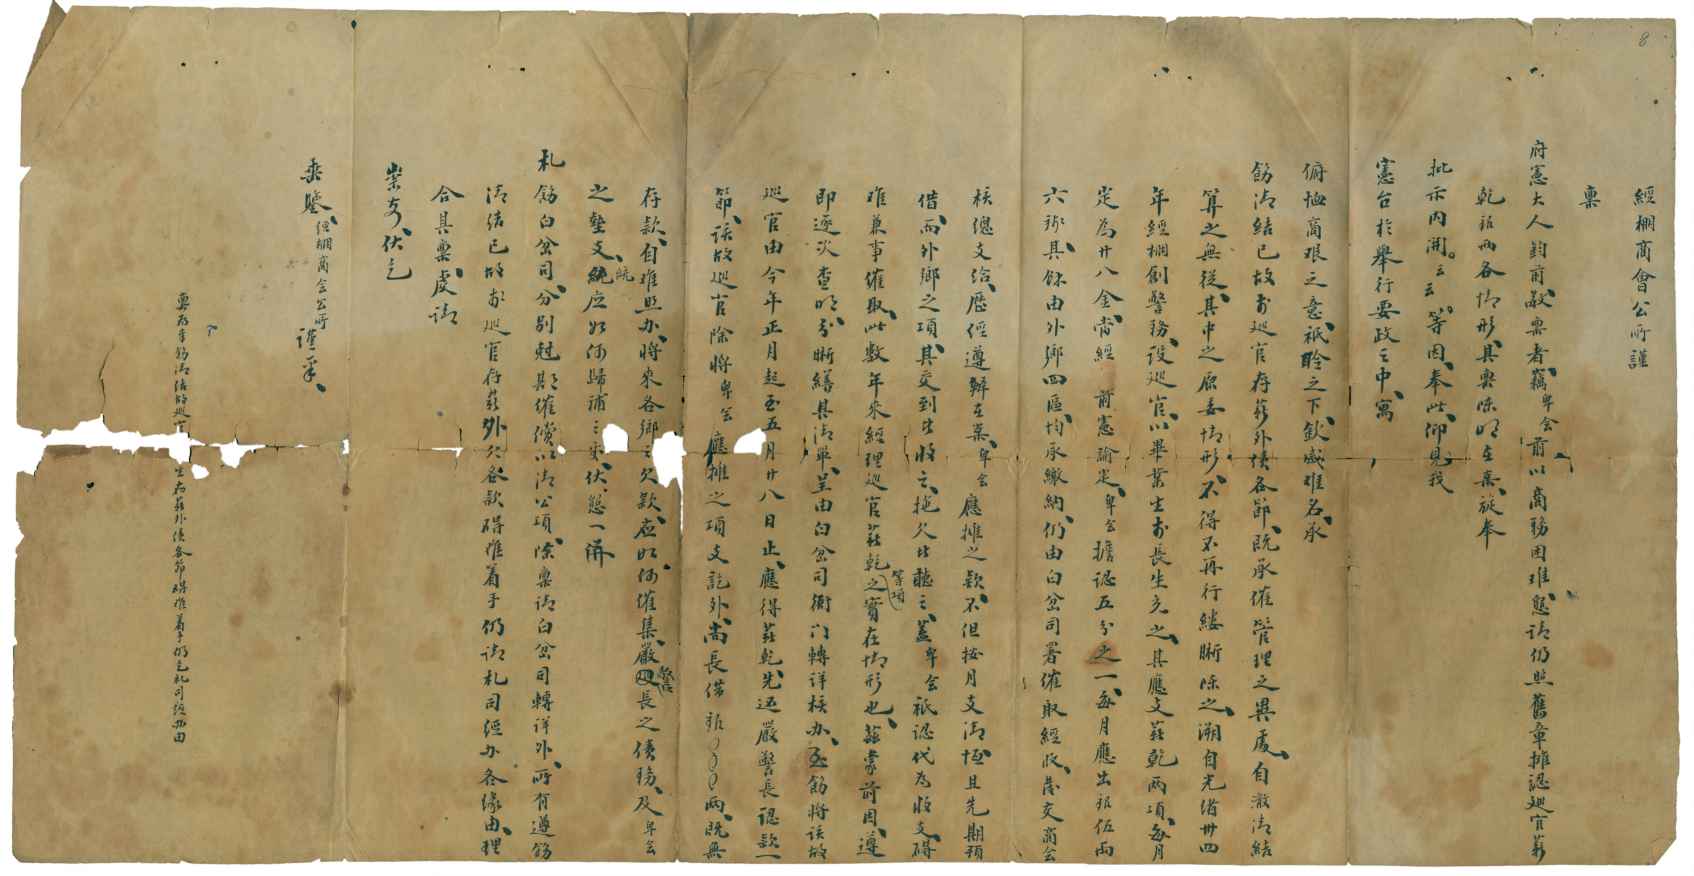 經棚商會公所謹
稟
府憲大人鈞前敬稟者竊卑會前以商務困難懇請仍照舊章攤認巡官薪
乾銀兩各情形具稟陳明在案旋奉
批示內開云云等因奉此仰見我
憲台於舉行要政之中寓
俯恤商艱之意祇聆之下欽感難名承
飭清結已故前巡官存薪外債各節既承催管理之異處自澈清結
算之無從其中之原委情形不得不再行縷晰陳之溯自光緒卅四
年經棚創警務設巡官以畢業生前長生充之其應支薪乾兩項每月
定為廿八金嘗經前憲諭定卑會擔認五分之一每月應出銀伍兩
六錢其餘由外鄉四區均承繳納仍由白岔司署催取經收落交商會
核總支給歷經遵辦在案卑會應攤之款不但按月支清恆且先期預
借而外鄉之項其交到者收之拖欠者聽之蓋卑會祇認代為收支碍
難兼事催取此數年來經理巡官薪乾之等項實在情形也茲蒙前因遵
即逐次查明分晰繕具清單呈由白岔司衙門轉詳核办至飭將該故
巡官由今年正月起至五月廿八日止應得薪乾先還嚴警長認款一
節該故巡官除將卑會應攤之項支訖外尚長借銀〇〇〇兩既無
存款自難照办將來各鄉之欠款应如何催集嚴巡警長之債務及卑会
之墊支統統应如何歸補之處伏懇一併
札飭白岔司分別尅期催償以清公項除稟請白岔司轉詳外所有遵飭
清結已故前巡官存薪外欠各款碍难着手仍請札司經办各緣由理
合具稟虔請
崇安伏乞
垂鑒經棚商会公所謹稟
稟为奉飭清結故巡官 生存薪外債各節碍难着手仍乞札司經办由